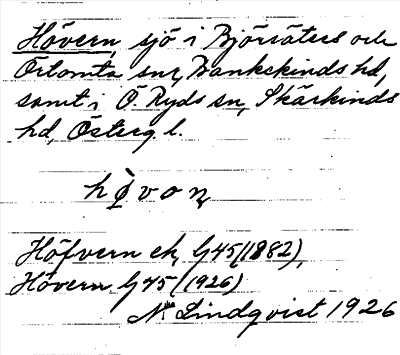 Hövern, sjö i Björsäters och
Örtomta snr, Bankekinds hd,
samt i Ö. Ryds sn, Skärkinds
hd, Österg. l.
hövon
Höfvern ek, G45 (1882),
Hövern G45 (1926)
N. Lindqvist 1926